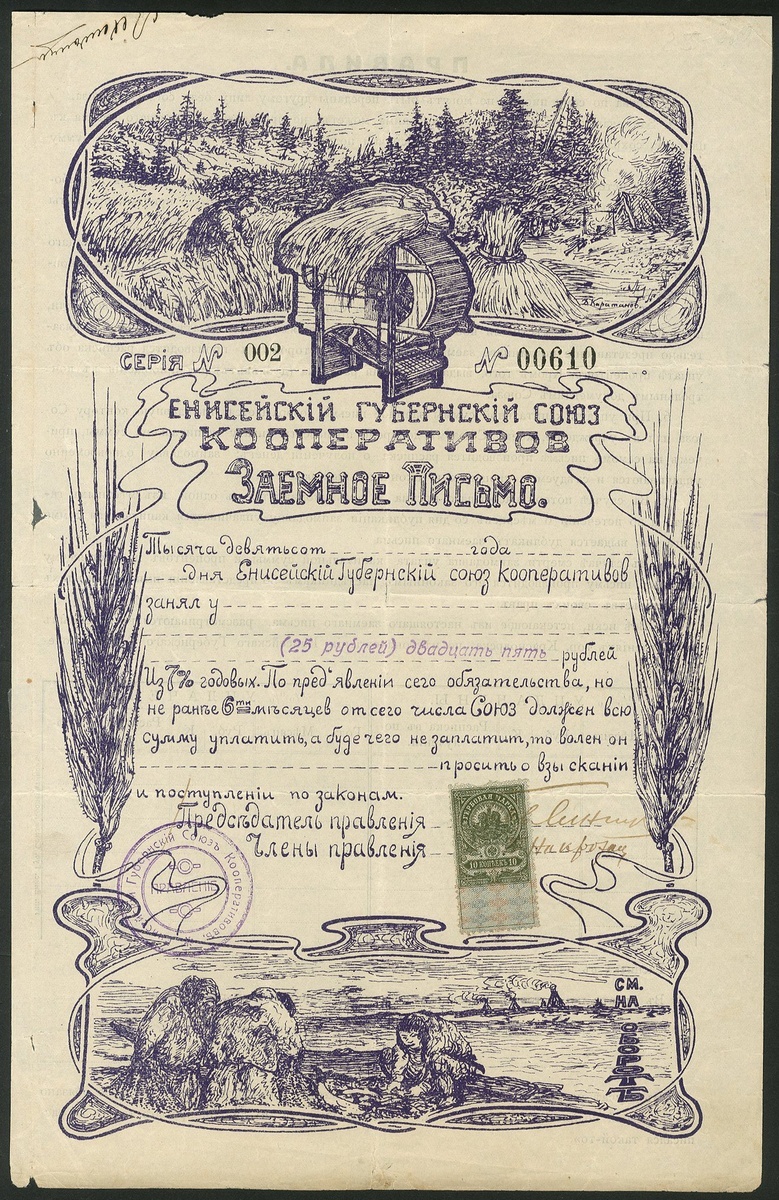 ПРАВИЛА.
Д. Каратанов.
СЕРІЯ № 002 № 00610
ЕНИСЕЙСКІЙ ГУБЕРНСКІЙ СОЮЗ
КООПЕРАТИВОВ
ЗАЕМНОЕ ПИСЬМО.
Тысяча девятьсот года
дня Енисейскій Губернскій союз кооперативов
занял у
(25 рублей) двадцать пять рублей
Из 7% годовых. По пред'явленіи сего обязательства, но
не ранѣе 6ти мѣсяцев от сего числа Союз должен всю
сумму уплатить, а буде чего не заплатит, то волен он
просить о взысканіи
и поступленіи по законам.
Предсѣдатель правленія
Члены правленія
ГЕРБОВАЯ МАРКА
10 КОПѢЕКЪ 10
Губернскій Союзъ Кооперативовъ
ПРАВЛЕНІЕ
СМ.
НА
ОБОРОТѢ